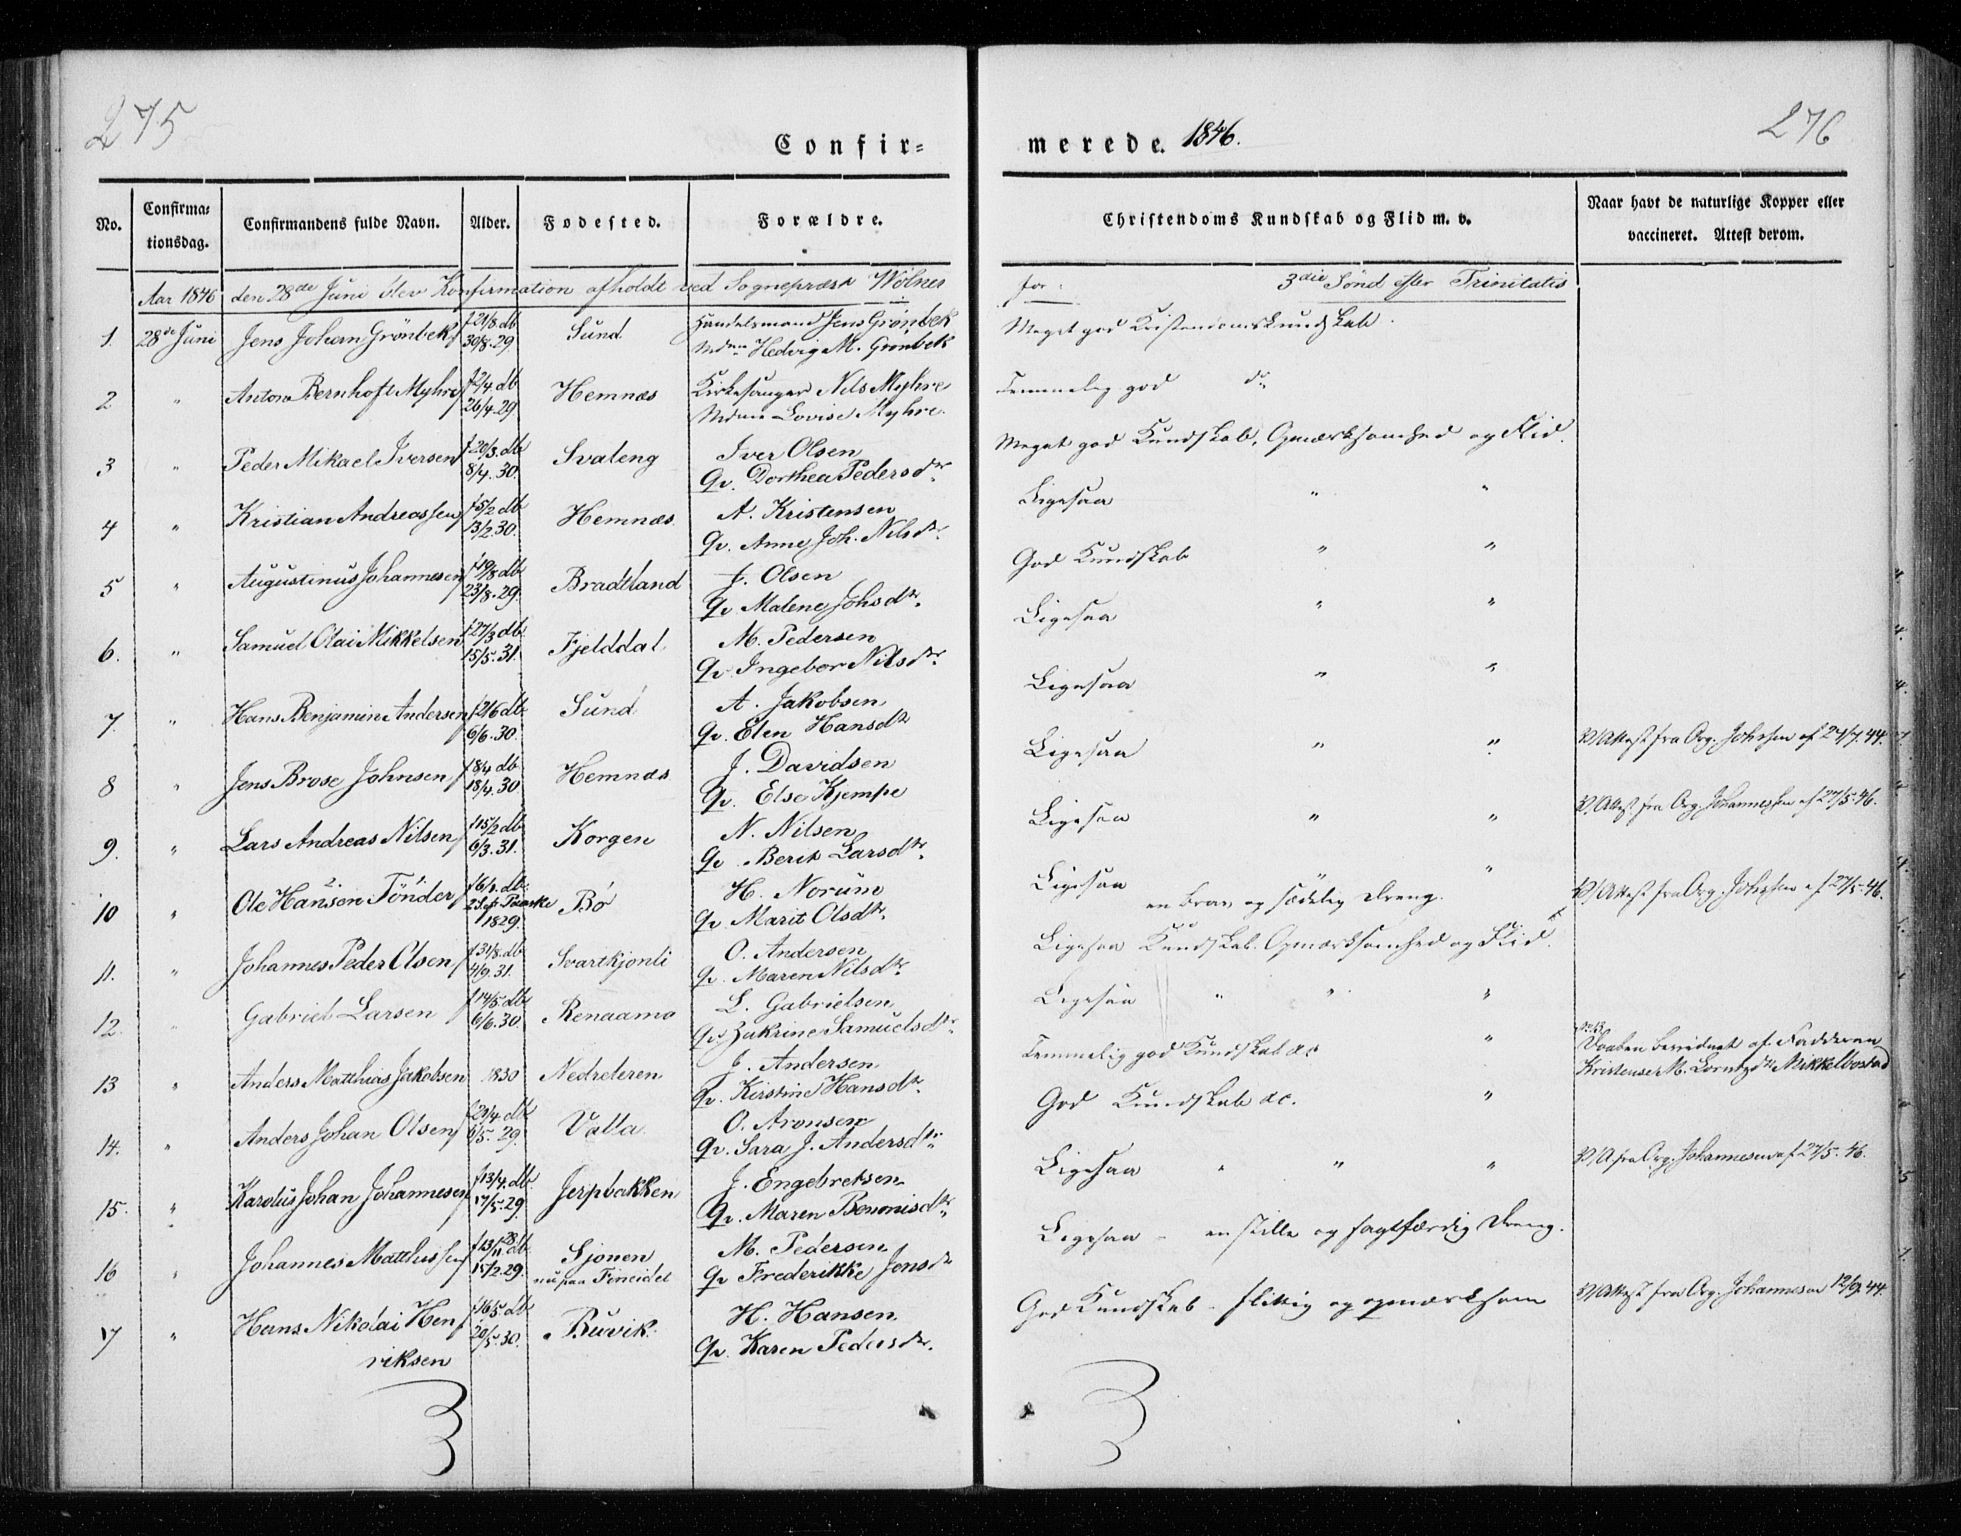 275
Confir-
No.
Confirma-
tionsdag.
Confirmandens fulde Navn.
Alder.
Fødested.
Forældre.
Aar 1846 den 28de Juni blev Konfirmation afholdt ved Sognepræst Wolner
1. 28de Juni Jens Johan Grønbek f 21/8. db 30/8-29. Sund Handelsmand Jens Grønbek
Mdme Hedvig M. Grønbek
2 " Anton Bernhoft Myhre f 2/4. db 26/4.29 Hemnæs Kirkesanger Nils Myhre
Mdme Lovise Myhre.
3 " Peder Mikael Iversen f 20/3. db 8/4. 30. Svaleng Iver Olsen
Qv. Dorthea Pedersdtr.
4 " Kristian Andreassen f 5/2 db 13/2.30. Hemnæs A. Kristensen
Qv. Anne Joh. Nilsdtr.
5 " Augustinus Johannesen f 19/8 db 23/8.29. Bradtland J. Olsen
Qv Malene Johsdtr.
6. " Samuel Olai Mikkelsen f 27/3 db 15/5.31. Fjelddal M. Pedersen
Qv. Ingebor Nilsdtr.
7. " Hans Benjamin Andersen f 2/6 db 6/6.30. Sund A. Jakobsen
Qv. Elen Hansdtr
8 " Jens Brose Johnsen f 8/4 db 18/4.30 Hemnæs J. Davidsen
Qv. Else Kjempe
9. " Lars Andreas Nilsen f 15/2 db 6/3.31. Korgen N. Nilsen
Qv. Berit Larsdtr.
10 " Ole Hansen Tønder f 6/1. db. 2 Sept Paaske 1829. Bø H. Norum
Qv Marit Olsdtr.
11. " Johannes Peder Olsen f 31/8. db 4/9.31. Svartkjønli O. Andersen
Qv. Maren Nilsdtr.
12. " Gabriel Larsen f 14/5. db 6/6.30 Renaamo L. Gabrielsen
Qv Zakrine Samuelsdtr.
13 " Anders Matthias Jakobsen 1830 Nedreleren J. Andersen
Qv. Kirstine Hansdtr.
14. " Anders Johan Olsen f 20/4. db 6/5-29. Valla O. Aronsen
Qv. Sara J. Andersdtr
15. " Karolus Johan Johannesen f 13/4. db 17/5.29. Jerpbakken J. Engebretsen
Qv. Maren Benonisdtr.
16 " Johannes Matthissen f 13/11 28 db 15/2.29. Sjonen M. Pedersen
nu paa Finneidet Qv Frederikke Jonsdtr
17 " Hans Nikolai Hen- f 16/5 db 20/5.30. Buvik H. Hansen
riksen Qv. Karen Pedersdtr.
276
merede. 1846.
Christendoms Kundskab og Flid m. v.
Naar havt de naturlige Kopper eller
vaccineret. Attest derom.
for 3die Sønd efter Trinitatis
Meget god Kristendomskundskab.
Temmelig god do
Meget god Kundskab, Opmærksomhed og Flid.
Ligesaa " "
God Kundskab " "
Ligesaa " "
Ligesaa " "
Ligesaa " " V/ Attest fra Org. Johnsen af 24/7.44.
Ligesaa " " V/ Attest fra Org. Johannessen af 27/5-46.
Ligesaa "
en brav og sædelig Dreng. V/ Attest fra Org. Johnsen af 27/5-46.
Ligesaa Kundskab. Opmærksomhed og Flid.
Ligesaa " " "
Temmelig god Kundskab &c "
No 13
Daaben bevidnet af Fadderen
Kristense M. Lorntzdtr Mikkelbostad
God Kundskab &c. "
Ligesaa " " " V/ A fra Org. Johannesen af 27/5-46.
Ligesaa - en stille og sagtfærdig Dreng.
God Kundskab - flittig og opmærksom V/ Attest fra Org. Johannesen 12/9.44.